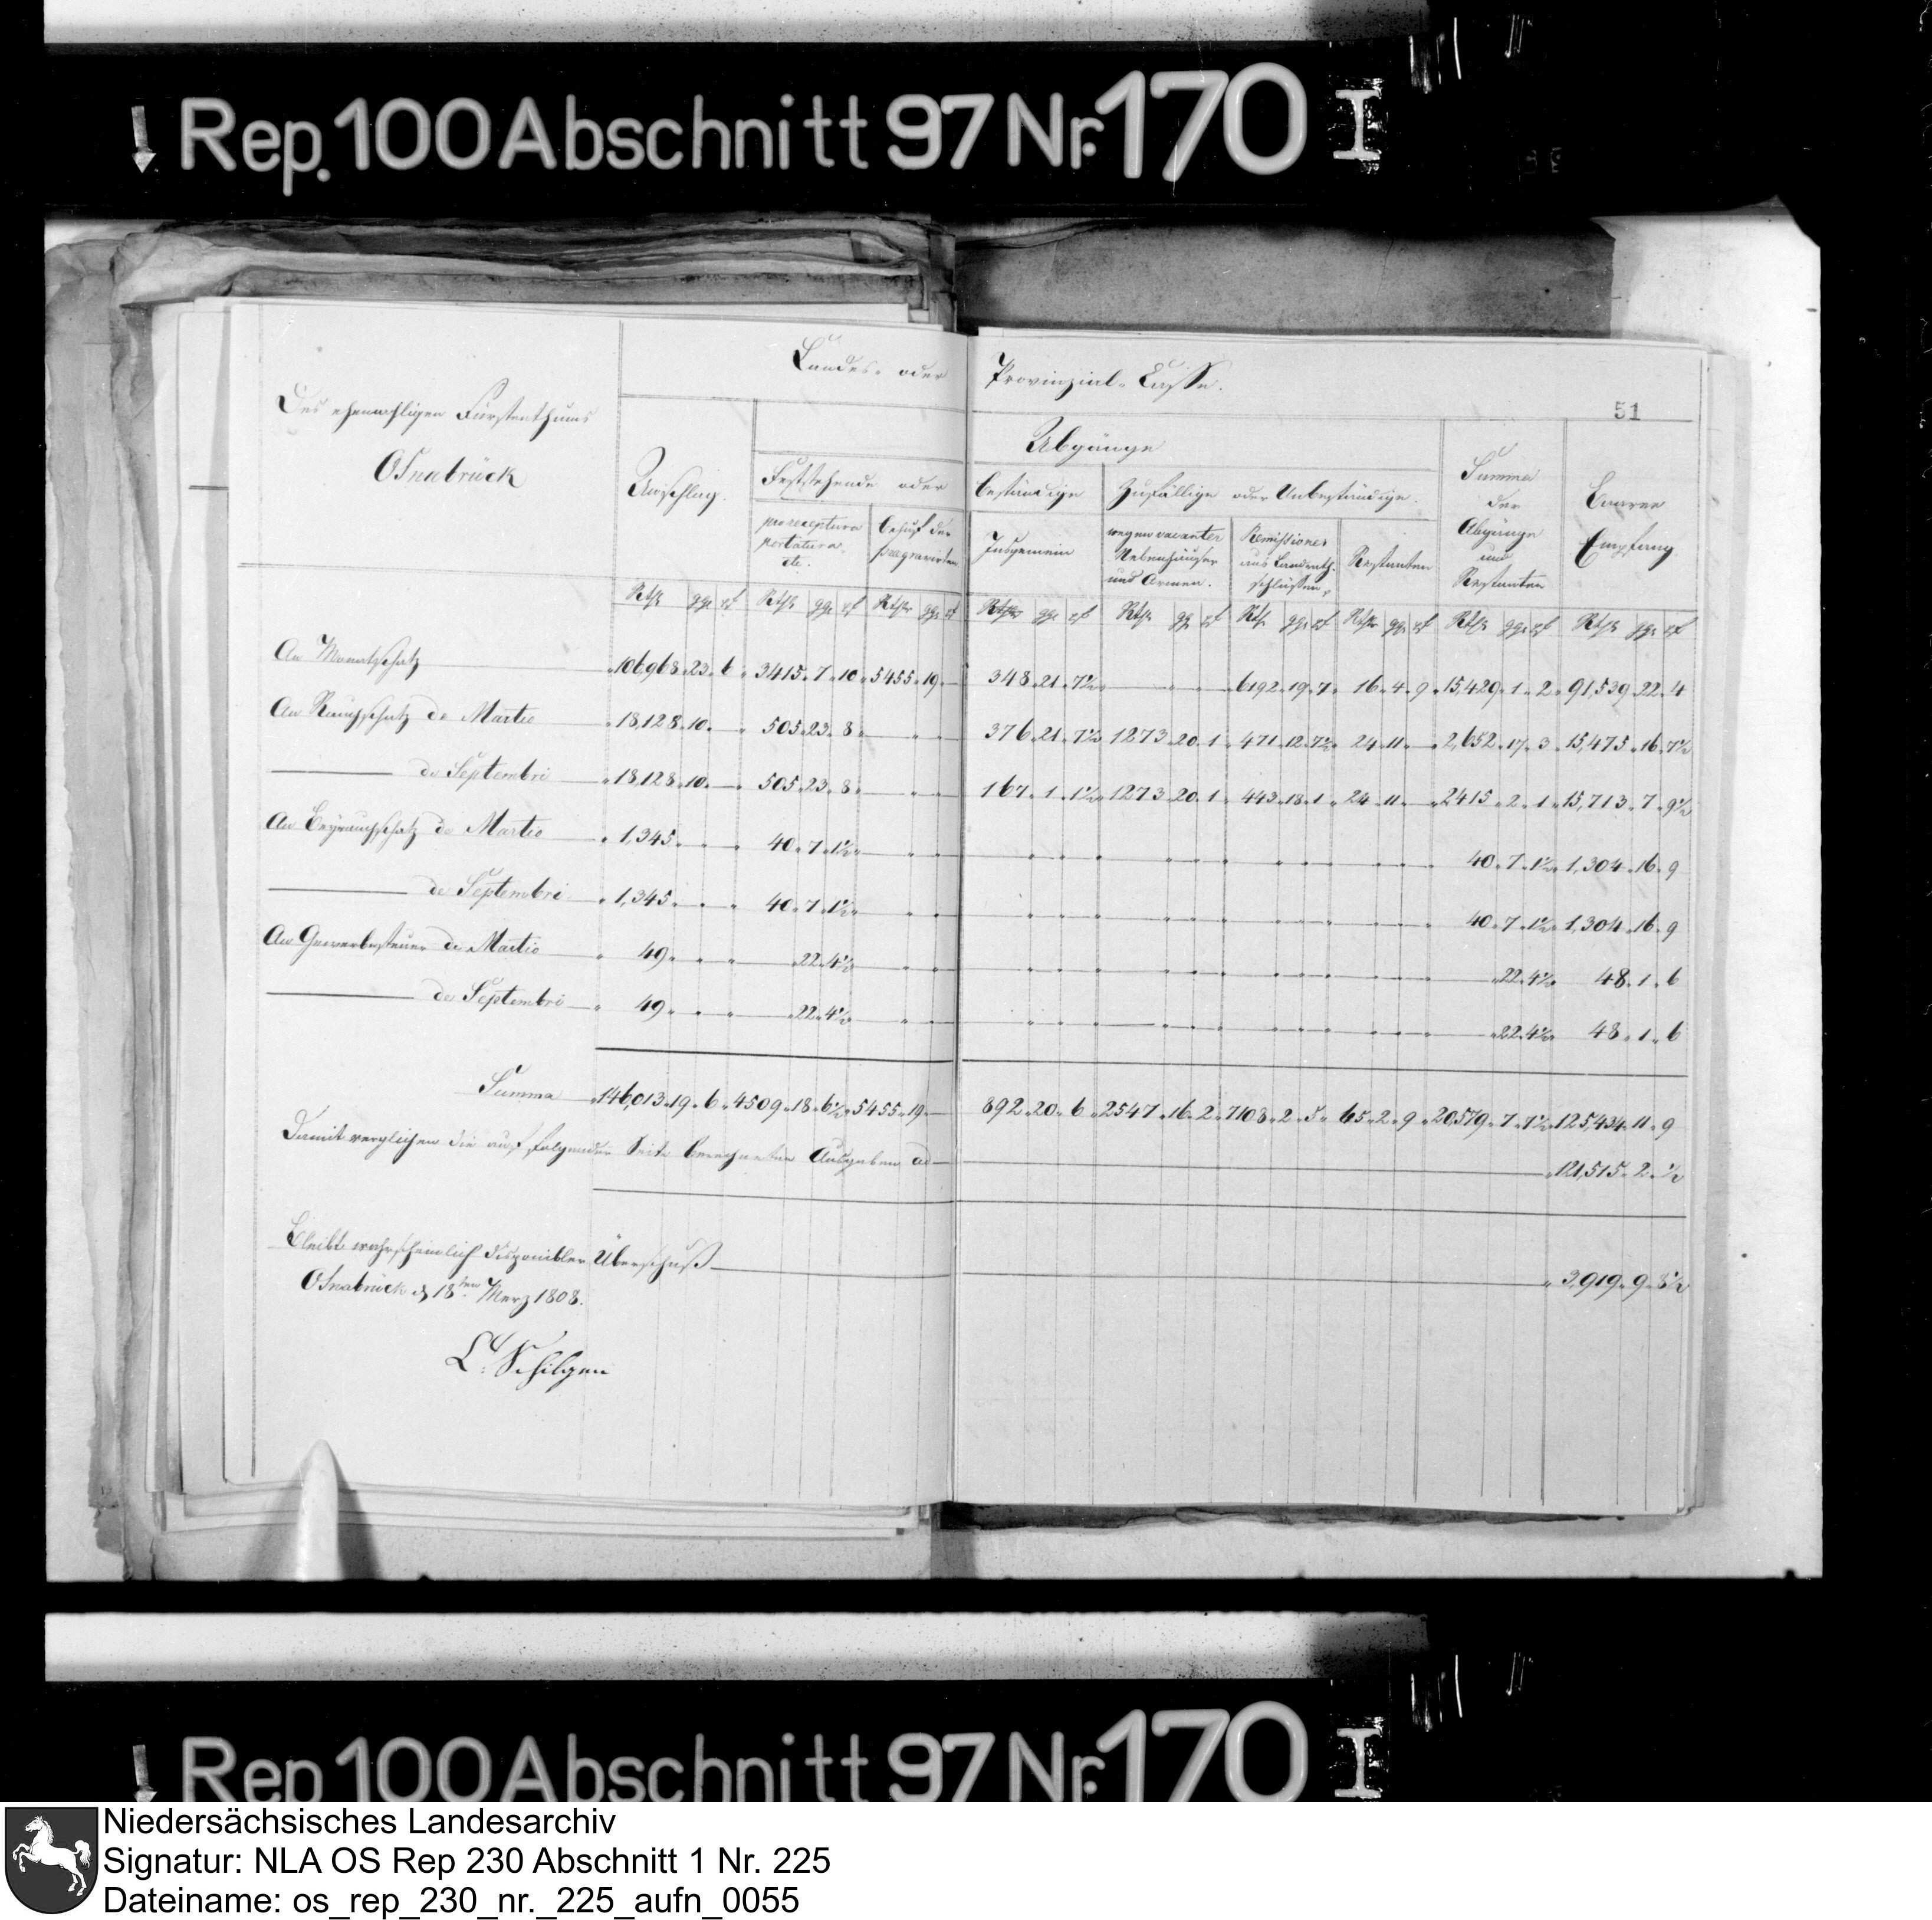 Rep. 100 Abschnitt 97 Nr. 170 I
Landes- oder Provinzial-Casse.
51
Des ehemahligen Fürstenthums
Osnabrück
Anschlag.
Abgänge
Feststehende oder beständige
Zufällige oder Unbeständige.
Summa der Abgänge und Restanten
Baarer Empfang
pro receptura portatura. etc.
behuf der praegravirten
Insgemein
wegen vacanter Nebenhäuser und Armen.
Remissiones aus Landraths-schlüssen.
Restanten
Rthlr ggr pf Rthlr ggr pf Rthlr ggr pf Rthlr ggr pf Rthlr gg pf Rthlr ggr pf Rthlr ggr pf Rthlr ggr pf Rthlr ggr pf
An Monatschatz 106,968. 23. 6 3415. 7. 10 5455. 19. — 348. 21. 7½ 6192. 19. 7 16. 4. 9 15,429. 1. 2 91,539. 22. 4
An Rauchschatz de Martio 18,128. 10. 505. 23. 8 376. 21. 7½ 1273. 20. 1 471. 12. 7½ 24. 11. — 2,652. 17. 3 15,475. 16. 7½
— de Septembri 18,128. 10. — 505. 23. 8 167. 1. 1½ 1273. 20. 1 443. 18. 1 24. 11. — 2415. 2. 1 15,713. 7. 9½
An Beyrauchschatz de Martio 1,345. 40. 7. 1½ 40. 7. 1½ 1,304. 16. 9
— de Septembri 1,345. 40. 7. 1½ 40. 7. 1½ 1,304. 16. 9
An Gewerbesteuer de Martio 49. 22. 4½ 22. 4½ 48. 1. 6
— de Septembri 49. 22. 4½ 22. 4½ 48. 1. 6
Summa 146,013. 19. 6 4509. 18. 6½ 5455. 19. — 892. 20. 6 2547. 16. 2 7108. 2. 3 65. 2. 9 20,579. 7. 7½ 125,434. 11. 9
Damit verglichen die auf folgender Seite berechneten Ausgaben ad — 121,515. 2. ½
Bleibt wahrscheinlich disponibler Überschuß — 3,919. 9. 8½
Osnabrück d. 18ten Merz 1808.
L. Schilgen
Rep 100 Abschnitt 97 Nr. 170 I
Niedersächsisches Landesarchiv
Signatur: NLA OS Rep 230 Abschnitt 1 Nr. 225
Dateiname: os_rep_230_nr._225_aufn_0055